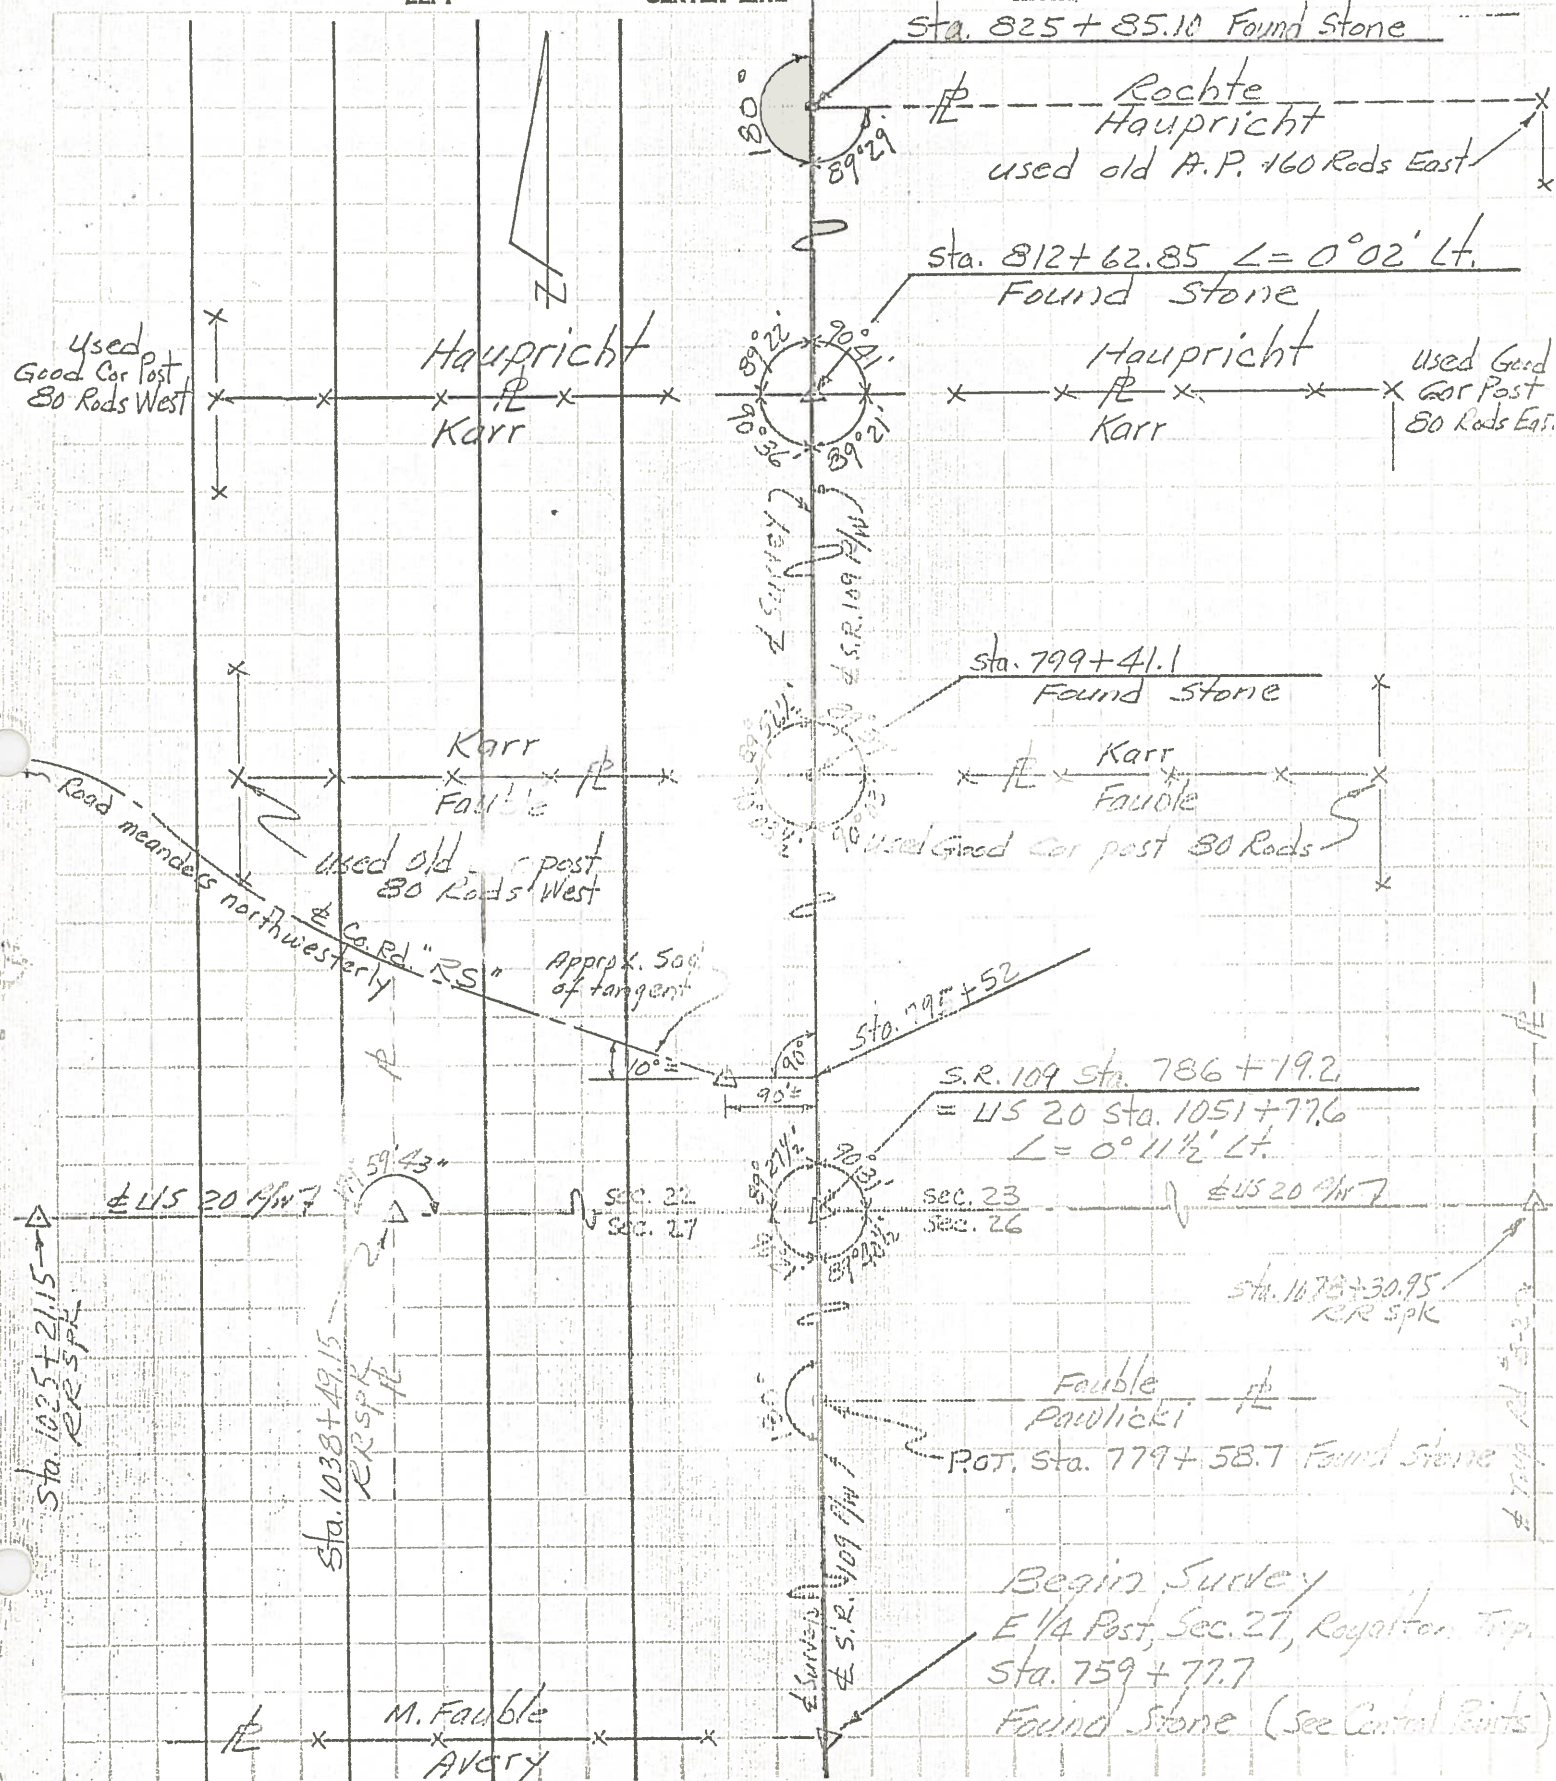 CENTER LINE
Sta. 825 + 85.10 Found Stone
180°
89°29'
Rochte
℄
Haupricht
used old A.P. 160 Rods East
N
Sta. 812 + 62.85 ∠ = 0°02' Lt.
Found Stone
used
Good Cor Post
80 Rods West
Haupricht
℄
Karr
89°22'
90°41'
90°36'
89°21'
Haupricht
℄
Karr
Used Good
Cor Post
80 Rods East
℄ SURVEY
℄ S.R. 109 R/W
Sta. 799+41.1
Found Stone
Karr
℄
Fauble
Karr
℄
Fauble
used Good Cor post 80 Rods
used old post
80 Rods West
Road meanders northwesterly
℄ Co. Rd. "RS"
Approx. 500
of tangent
10°±
90°
90'±
Sta. 795+52
S.R. 109 Sta. 786 + 19.2
= US 20 Sta. 1051+77.6
∠ = 0° 11½' Lt.
59'43"
℄ US 20 R/W
Sec. 22
Sec. 27
Sec. 23
Sec. 26
℄ US 20 R/W
Sta. 1025+21.15
RR Spk
Sta. 1038+49.15
RR Spk
Sta. 1078+30.95
RR Spk
Fauble
Pawlicki
P.O.T. Sta. 779+58.7 Found Stone
℄ Survey
℄ S.R. 109 R/W
Begin Survey
E 1/4 Post, Sec. 27, Royalton Twp.
Sta. 759 + 77.7
Found Stone (See Control Points)
M. Fauble
Avery